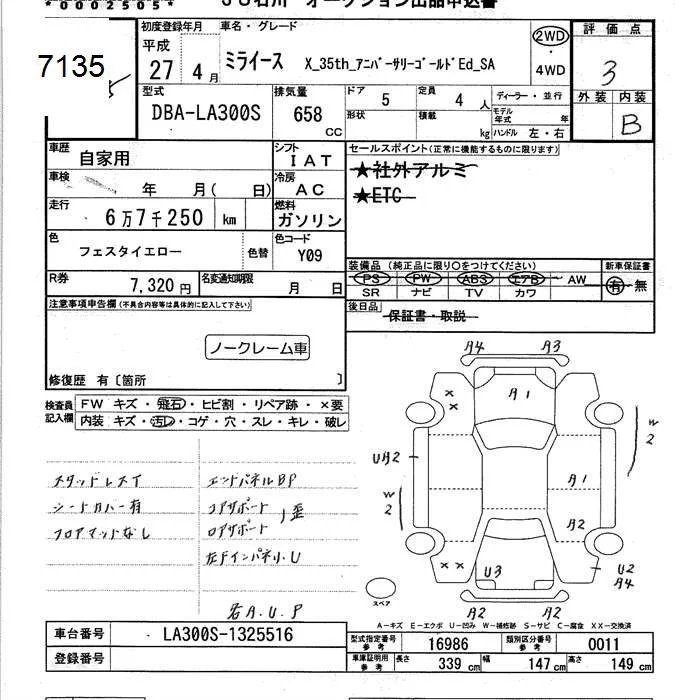 *00025054*
JU石川 オークション出品申込書
7135
初度登録年月 車名・グレード
平成 27年 4月 ミライース X_35th_アニバーサリーゴールドEd_SA
2WD
4WD
評価点
3
外装 内装
B
型式 排気量 ドア 定員 ディーラー・並行
DBA-LA300S 658 CC 5 4人
形状 積載 kg モデル年式 年
ハンドル 左・右
車歴 自家用 シフト IAT
車検 年 月( 日) 冷房 AC
走行 6万7千250 km 燃料 ガソリン
色 フェスタイエロー 色替 色コード Y09
R券 7,320円 名変通知期限 月 日
セールスポイント(正常に機能するものに限ります)
★社外アルミ
★ETC
装備品 (純正品に限り○をつけてください) 新車保証書
PS PW ABS エアB AW 有・無
SR ナビ TV カワ
後日品 保証書・取説
注意事項申告欄(不具合内容等は具体的に記入して下さい)
ノークレーム車
修復歴 有〔箇所 〕
検査員記入欄
FW キズ・飛石・ヒビ割・リペア跡・×要
内装 キズ・汚レ・コゲ・穴・スレ・キレ・破レ
スタッドレスT
シートカバー有
フロアマットなし
エンドパネルBP
コアサポート
ロアサポート
歪
左Fインパネ小U
若A.U.P
A4 A3
×
×
A1
W
2
UA2
A1
W
2
A2
× ×
U3
U2
A4
A2 A2
スペア
A-キズ E-エクボ U-凹み W-補修跡 S-サビ C-腐食 XX-交換済
車台番号 LA300S-1325516
登録番号
型式指定番号 参考 16986 類別区分番号 参考 0011
車庫証明用 参考 長さ 339 cm 幅 147 cm 高さ 149 cm